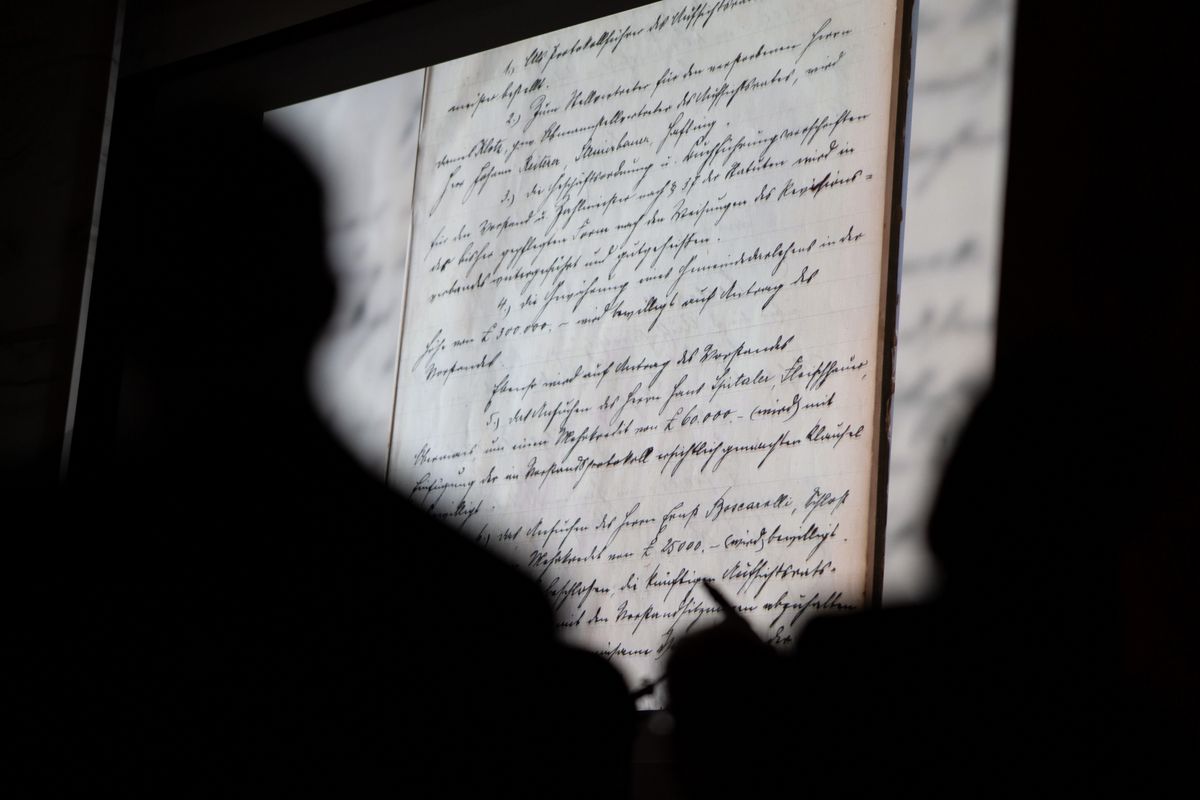 1.) Als Protokollführer des Aufsichtsrates
meister bestellt.
2.) Zum Stellvertreter für den verstorbenen Herrn
Klotz, zum Obmannstellvertreter des Aufsichtsrates, wird
Herr Johann Reiterer, Hafling.
3.) die Geschäftsordnung u. Ausführungsvorschriften
für den Vorstand u. Zahlmeister nach § 37 der Statuten wird in
der bisher gepflegten Form nach den Weisungen des Revisions=
verbandes weitergeführt und gutgeheißen.
4.) die Gewährung eines Gemeindedarlehens in der
Höhe von £ 300.000.- wird bewilligt auf Antrag des
Vorstandes.
Ebenso wird auf Antrag des Vorstandes
5.) das Ansuchen des Herrn Hans Spitaler, Fleischhauer,
Obermais um einen Mehrkredit von £ 60.000.- (wird) mit
Einfügung der im Vorstandsprotokoll ersichtlich gemachten Klausel
bewilligt.
6.) das Ansuchen des Herrn Ernst Boscarolli, Schloß
Mehrkredit von £ 25000.- (wird) bewilligt.
beschlossen, die künftigen Aufsichtsrats-
mit den Vorstandsitzungen abzuhalten
der